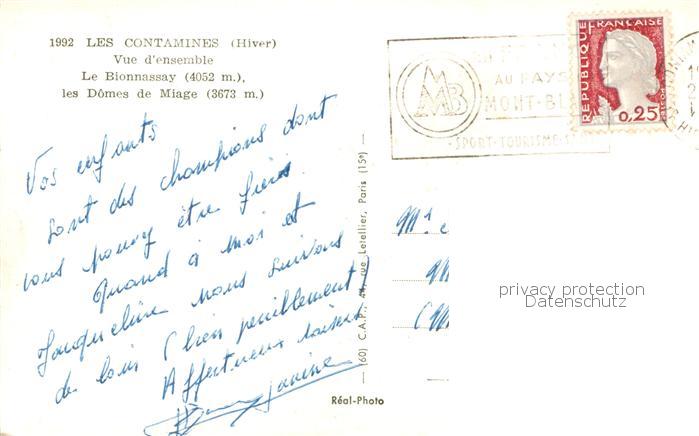 1992 LES CONTAMINES (Hiver)
Vue d'ensemble
Le Bionnassay (4052 m.),
les Dômes de Miage (3673 m.)
Vos enfants
sont des champions dont
vous pouvez être fiers.
Quand à moi et
Jacqueline nous suivons
de loin (bien péniblement)
Affectueux baisers
Janine
(60) C.A.P., 44, rue Letellier, Paris (15e)
Réal-Photo
AU PAYS
MONT-BL
SPORT-TOURISME
MB
REPUBLIQUE FRANÇAISE
POSTES
0,25
privacy protection
Datenschutz